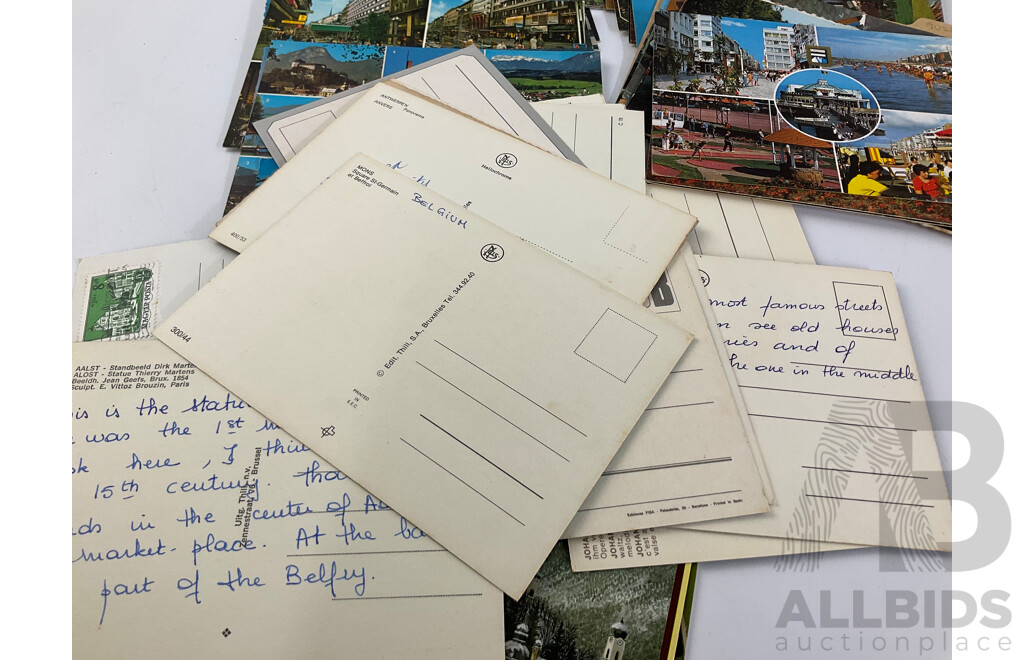 ANTWERPEN
ANVERS Panorama
Heliochrome
400/53
MONS
Square St-Germain
et Beffroi
BELGIUM
300/44
© Edit. Thill, S.A., Bruxelles Tel. 344.92.40
PRINTED
IN
E.E.C.
AALST - Standbeeld Dirk Marte
ALOST - Statue Thierry Martens
Beeldh. Jean Geefs, Brux. 1854
Sculpt. E. Vittoz Brouzin, Paris
is is the statu
was the 1st
here, I thin
15th century. tha
ds in the center of
market-place. At the ba
part of the Belfry.
Uitg. Thill, n.v.
Brussel
most famous streets
n see old houses
ries and of
he one in the middle
B
JOHA
JOHA
JOHA
AB
ALLBIDS
auctionplace